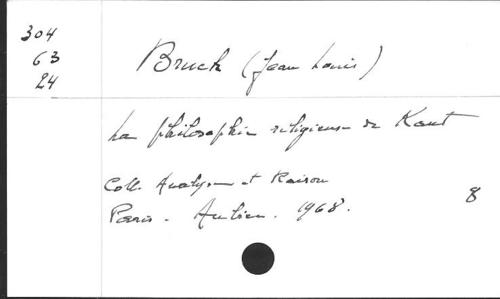 304
63
24
Bruch (Jean Louis)
La philosophie religieuse de Kant
Coll. Analyse et Raison
Paris. Aubier. 1968.
8